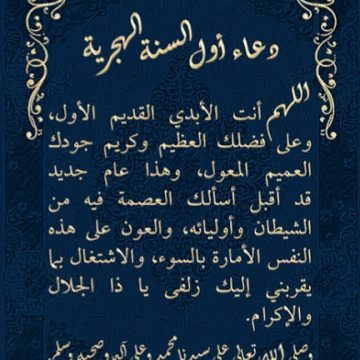 دعاء أول السنة الهجرية
اللهم أنت الأبدي القديم الأول،
وعلى فضلك العظيم وكريم جودك
العميم المعول، وهذا عام جديد
قد أقبل أسألك العصمة فيه من
الشيطان وأوليائه، والعون على هذه
النفس الأمارة بالسوء، والاشتغال بما
يقربني إليك زلفى يا ذا الجلال
والإكرام.
صلى الله تعالى على سيدنا محمد وعلى آله وصحبه وسلم